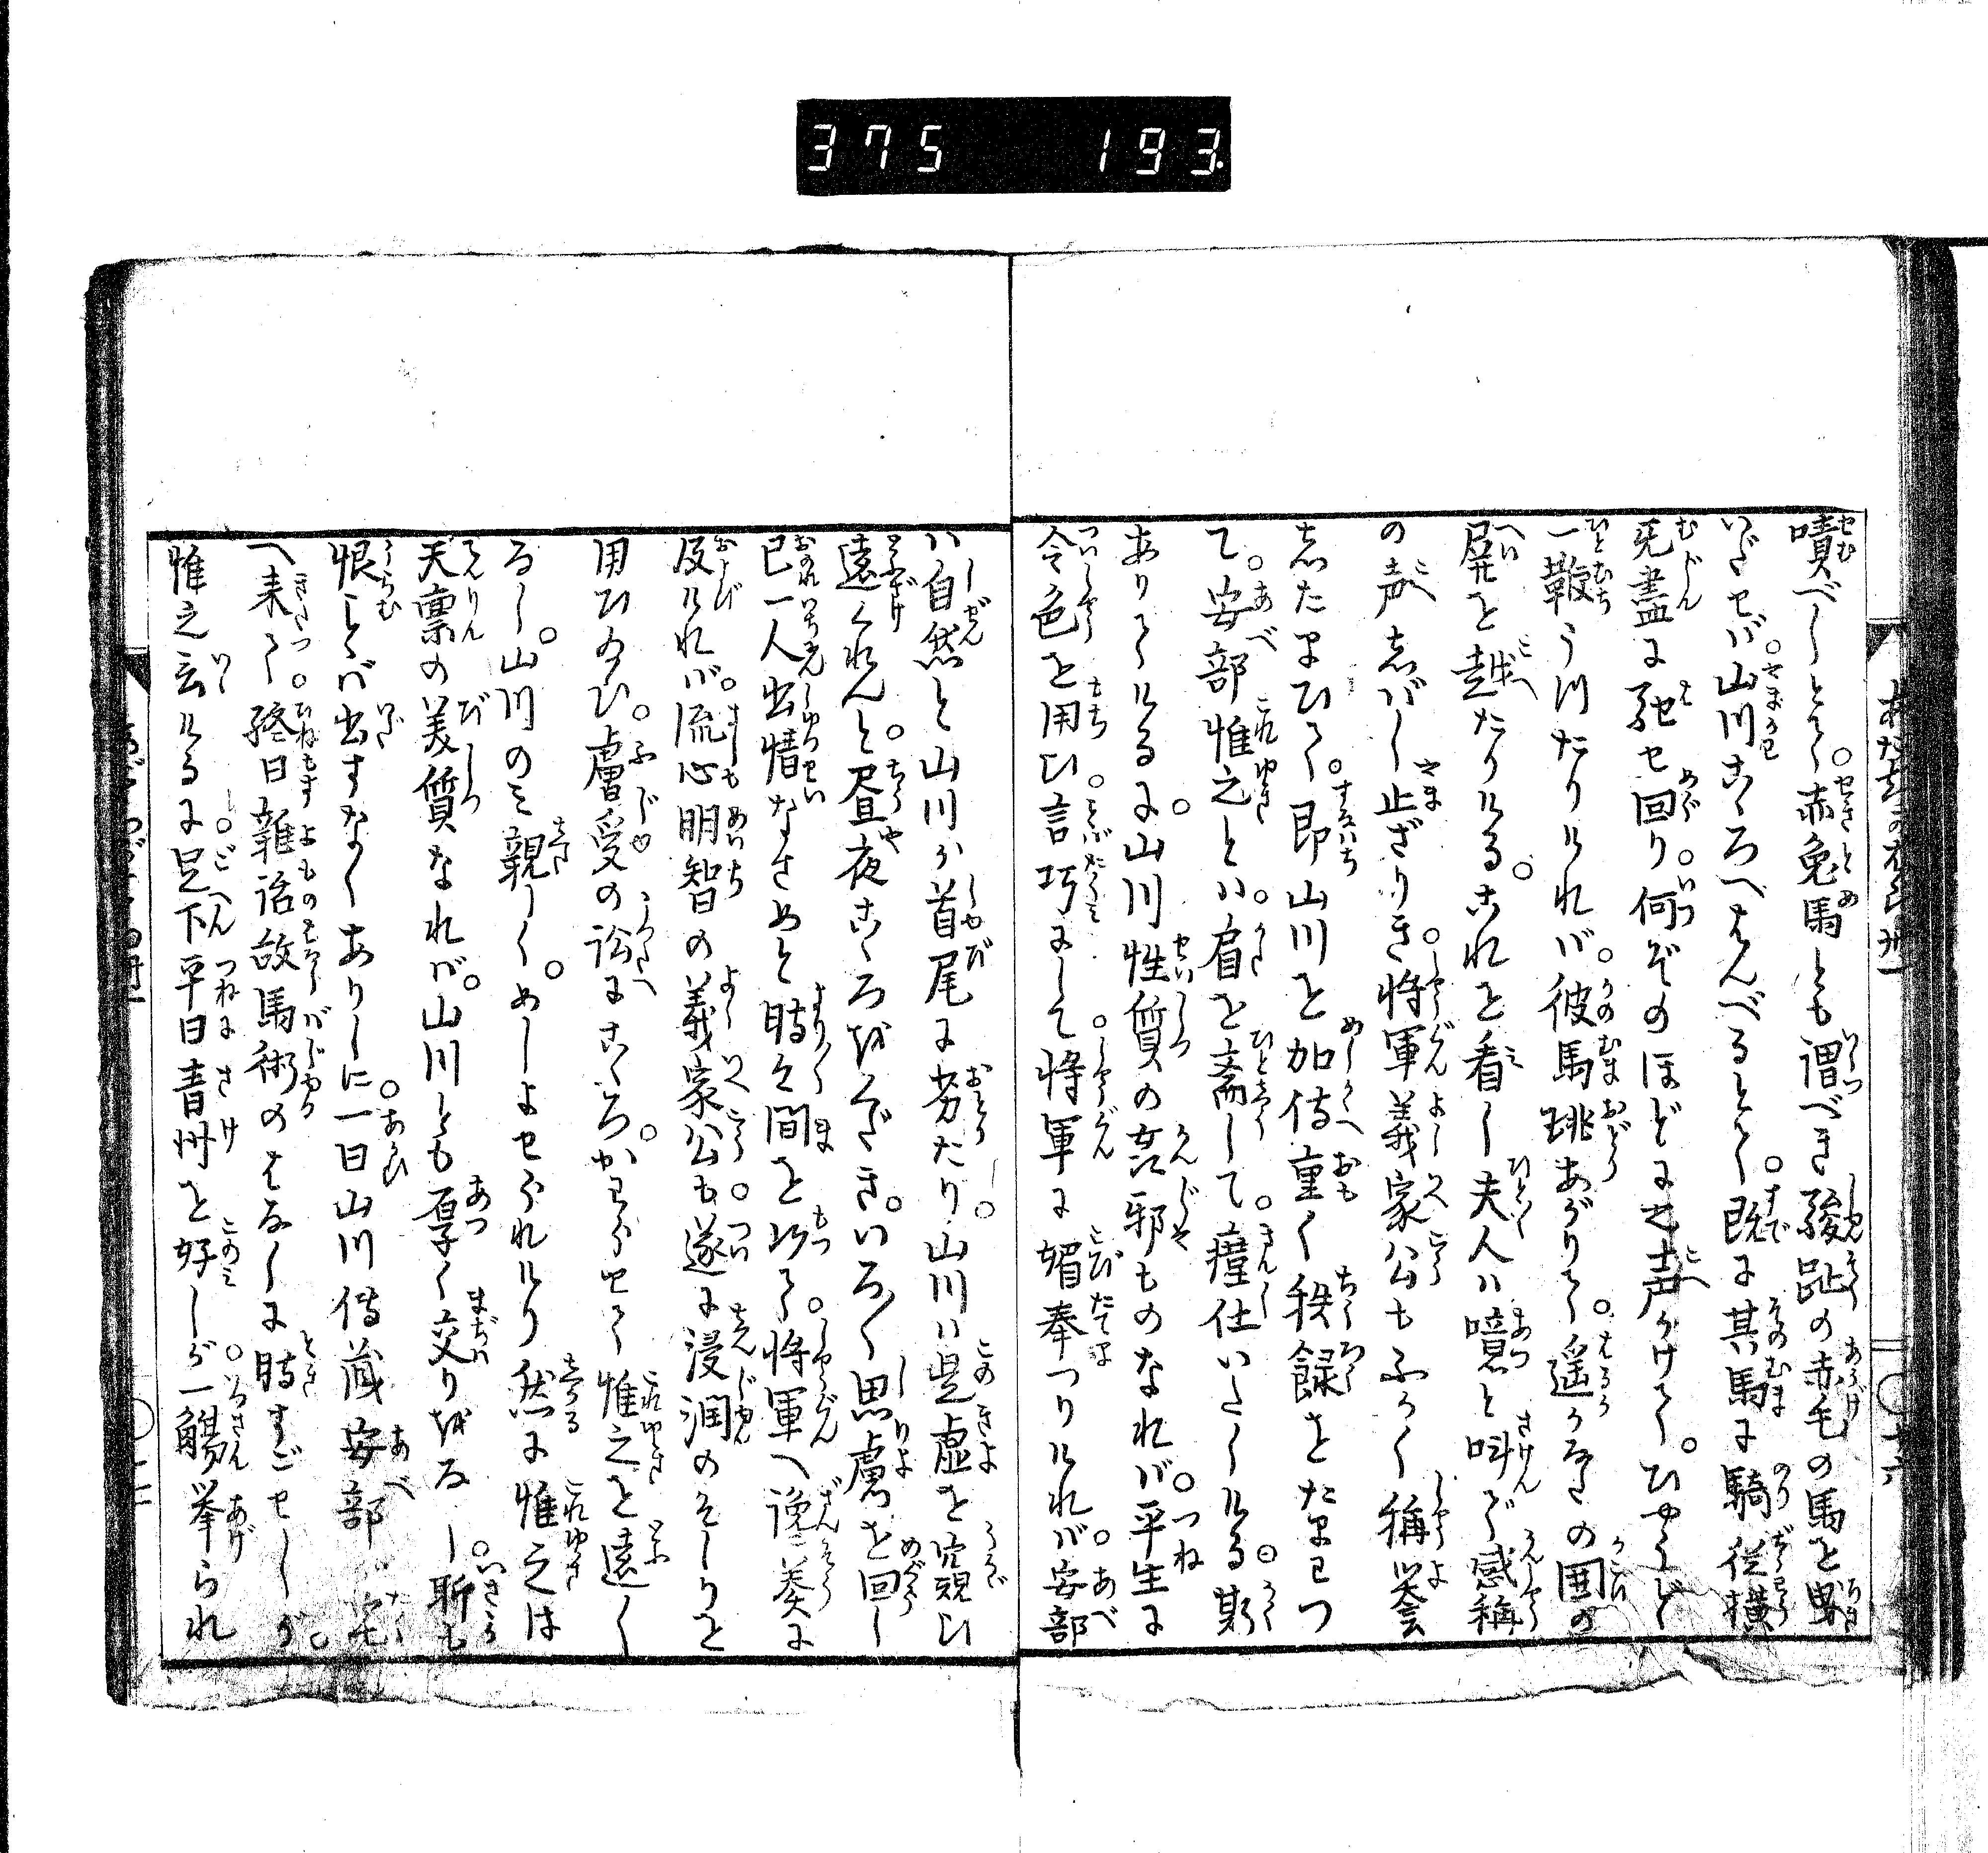 375 193.
嘖べしとて赤兎馬とも謂べき駿足の赤毛の馬を曳
いだせば山川こゝろへはんべるとて既に其馬に騎従横
無盡に馳セ回り何ぞのほどに声かけてひやうど
一鞭うつたりければ彼馬跳あがりて遥かなたの囲の
屏を越たりけるこれを看し夫人ハ噫と叫で感称
の声しばし止ざりき将軍義家公もふかく称誉
したまひて即山川を加侍重く秩録をたまはつ
て安部惟之とハ肩を斎して仕いたしける斯
ありてけるに山川性質の姦邪ものなれば平生に
令色を用ひ言巧にして将軍に媚奉つりければ安部
ハ自然と山川が首尾に劣たり山川ハ是虚を窺ひ
遠くれんと昼夜こゝろをくだきいろ〱思慮を回し
己一人出情なさめと時々間を以て将軍へ讒奏に
及ければ流心明智の義家公も遂に浸潤のそしりを
用ひ給ひ膚受の訟にこゝろかはらせて惟之を遠く
るし山川のミ親しくめしよせられけり然に惟之は
天禀の美質なれば山川とも厚く交りをなし聊も
恨ミバ出すなくありしに一日山川侍蔵安部が宅
へ来て終日雑話故馬術のはなしに時すごせしが
惟之云けるに足下平日青州を好しが一觴挙られ